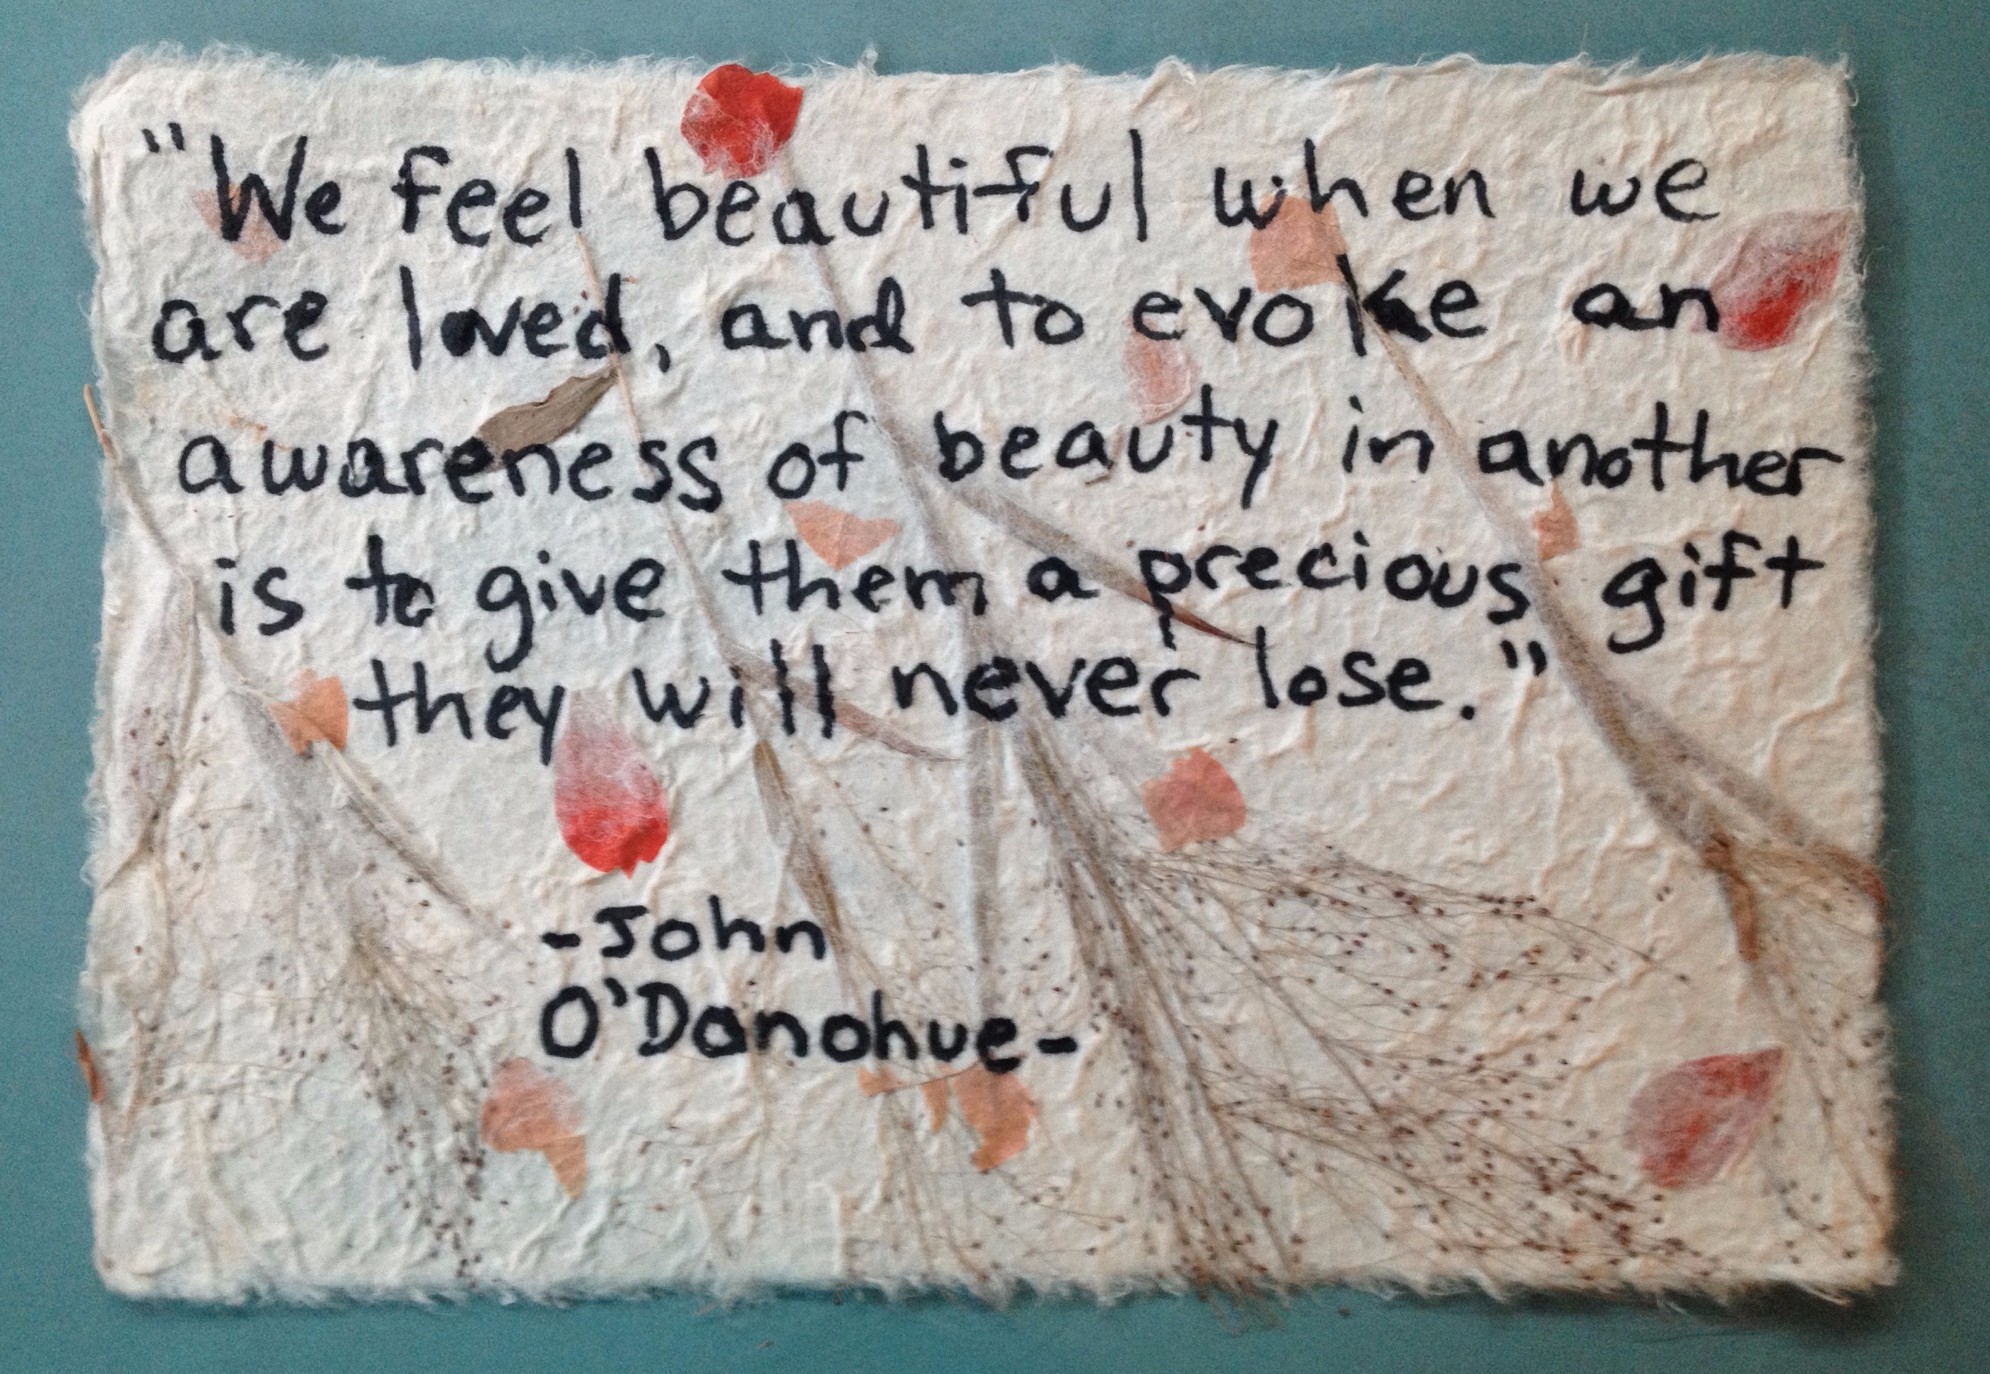 "We feel beautiful when we
are loved, and to evoke an
awareness of beauty in another
is to give them a precious gift
they will never lose."
-John
O'Donohue-